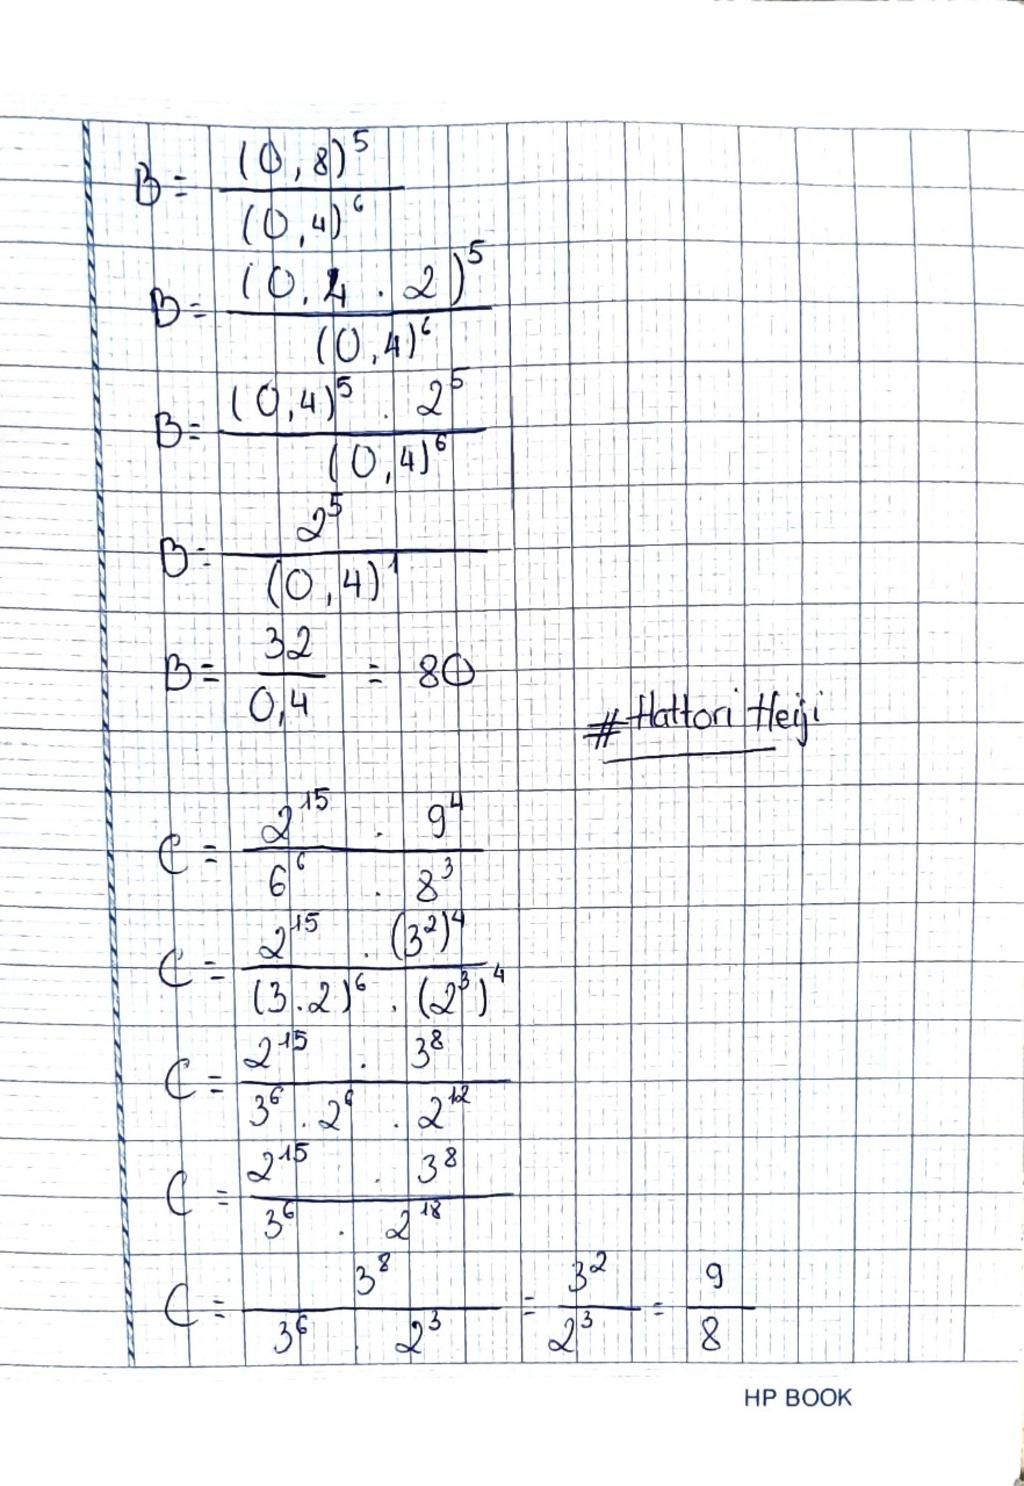 B = (0,8)⁵ / (0,4)⁶
B = (0,4 . 2)⁵ / (0,4)⁶
B = (0,4)⁵ . 2⁵ / (0,4)⁶
B = 2⁵ / (0,4)¹
B = 32 / 0,4 = 80
# Hattori Heiji
C = 2¹⁵ . 9⁴ / 6⁶ . 8³
C = 2¹⁵ . (3²)⁴ / (3.2)⁶ . (2³)⁴
C = 2¹⁵ . 3⁸ / 3⁶ . 2⁶ . 2¹²
C = 2¹⁵ . 3⁸ / 3⁶ . 2¹⁸
C = 3⁸ / 3⁶ . 2³ = 3² / 2³ = 9 / 8
HP BOOK